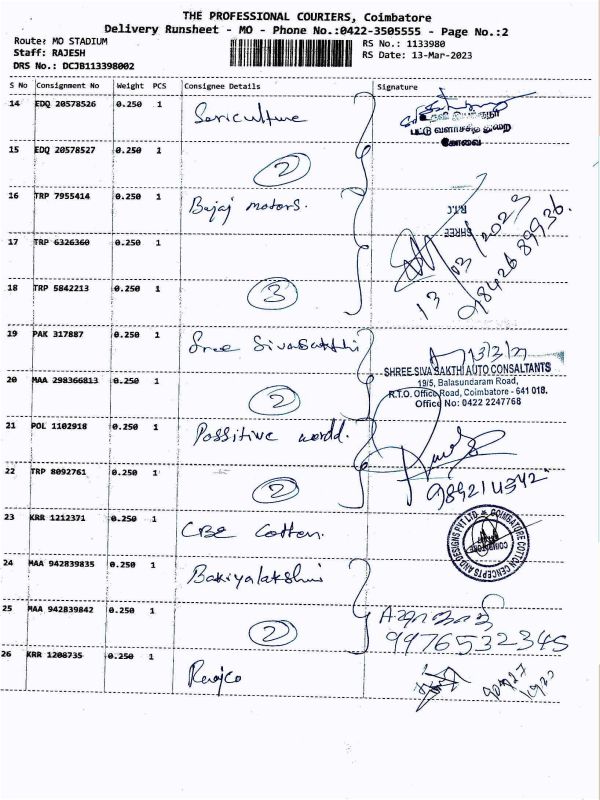 THE PROFESSIONAL COURIERS, Coimbatore
Delivery Runsheet - MO - Phone No.:0422-3505555 - Page No.:2
Route: MO STADIUM
Staff: RAJESH
DRS No.: DCJB113398002
RS No.: 1133980
RS Date: 13-Mar-2023
S No Consignment No Weight PCS Consignee Details Signature
14 EDQ 20578526 0.250 1 Sericulture
பட்டு வளர்ச்சித் துறை
கோவை
15 EDQ 20578527 0.250 1 2
16 TRP 7955414 0.250 1 Bajaj motors.
SHREE
13/03/2023
9842689936.
17 TRP 6326360 0.250 1
18 TRP 5842213 0.250 1 3
19 PAK 317887 0.250 1 Sree Sivasakthi
SHREE SIVA SAKTHI AUTO CONSALTANTS
19/5, Balasundaram Road,
R.T.O. Office Road, Coimbatore - 641 018.
Office No: 0422 2247768
20 MAA 298366813 0.250 1 2
21 POL 1102918 0.250 1 Possitive world.
22 TRP 8092761 0.250 1 2
23 KRR 1212371 0.250 1 CBE Cotton.
COIMBATORE COTTON CENCEPTS AND DESIGNS PVT LTD
24 MAA 942839835 0.250 1 Bakiyalakshmi
25 MAA 942839842 0.250 1 2
9976532345
26 KRR 1208735 0.250 1